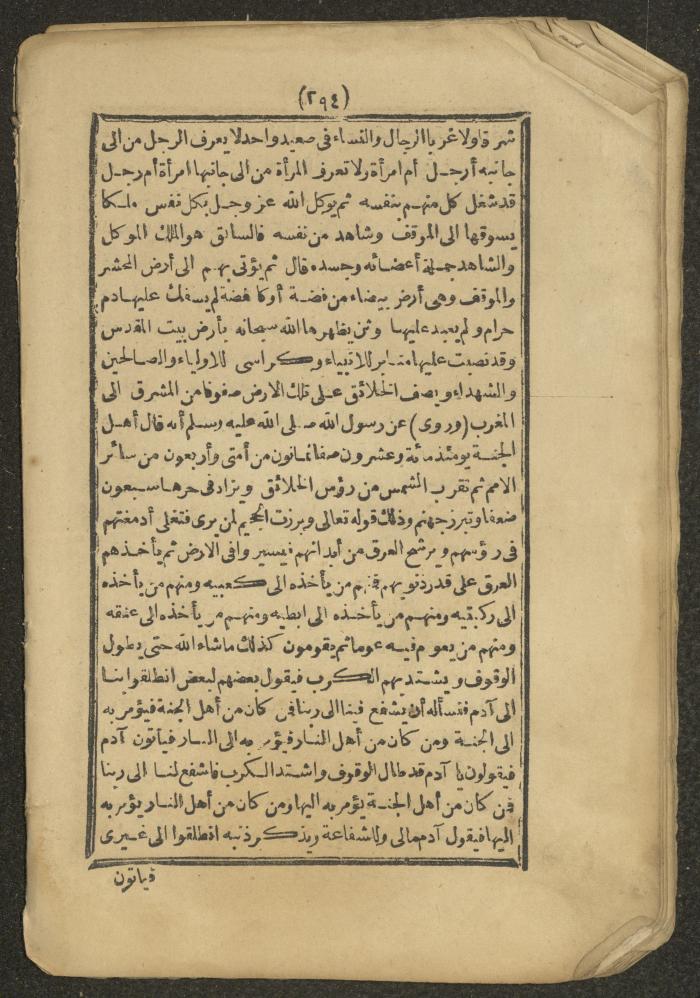 (٢٩٤)
شرقا ولا غربا الرجال والنساء فى صعيد واحد لا يعرف الرجل من الى
جانبه أرجل أم امرأة ولا تعرف المرأة من الى جانبها امرأة أم رجل
قد شغل كل منهم بنفسه ثم يوكل الله عز وجل بكل نفس ملكا
يسوقها الى الموقف وشاهد من نفسه فالسائق هو الملك الموكل
والشاهد جملة أعضائه وجسده قال ثم يؤتى بهم الى أرض المحشر
والموقف وهى أرض بيضاء من فضة أو كالفضة لم يسفك عليها دم
حرام ولم يعبد عليها وثن يظهرها الله سبحانه بأرض بيت المقدس
وقد نصبت عليها منابر للانبياء وكراسى للاولياء والصالحين
والشهداء ويصف الخلائق على تلك الارض صفوفا من المشرق الى
المغرب (وروى) عن رسول الله صلى الله عليه وسلم أنه قال أهل
الجنة يومئذ مائة وعشرون صفا ثمانون من أمتى وأربعون من سائر
الامم ثم تقرب الشمس من رؤس الخلائق ويزاد فى حرها سبعون
ضعفا وتبرز جهنم وذلك قوله تعالى وبرزت الجحيم لمن يرى فتغلى أدمغتهم
فى رؤسهم ويرشح العرق من أبدانهم فيسير وافى الارض ثم يأخذهم
العرق على قدر ذنوبهم فمنهم من يأخذه الى كعبيه ومنهم من يأخذه
الى ركبتيه ومنهم من يأخذه الى ابطيه ومنهم من يأخذه الى عنقه
ومنهم من يعوم فيه عوما ثم يقومون كذلك ما شاء الله حتى يطول
الوقوف ويشتد بهم الكرب فيقول بعضهم لبعض انطلقوا بنا
الى آدم فنسأله أن يشفع فينا الى ربنا فمن كان من أهل الجنة فيؤمر به
الى الجنة ومن كان من أهل النار فيؤمر به الى النار فيأتون آدم
فيقولون يا آدم قد طال الوقوف واشتد الكرب فاشفع لنا الى ربنا
فمن كان من أهل الجنة يؤمر به اليها ومن كان من أهل النار يؤمر به
اليها فيقول آدم مالى وللشفاعة ويذكر ذنبه انطلقوا الى غيرى
فيأتون